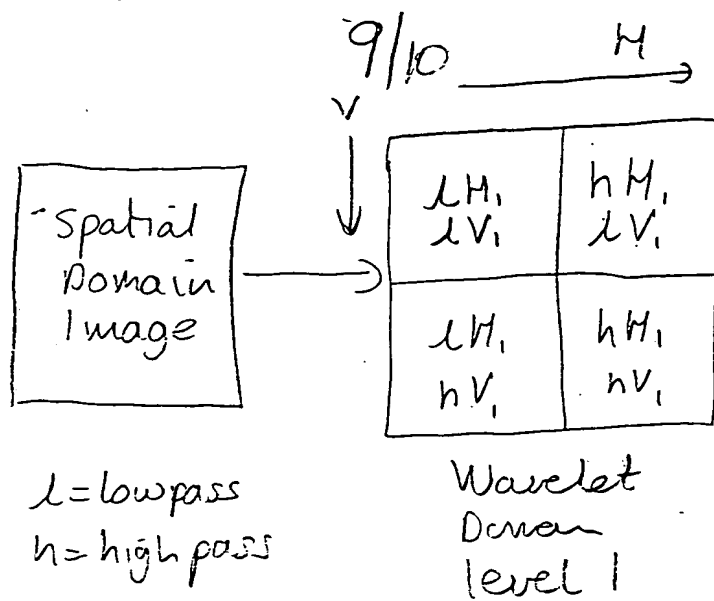 9/10
H
V
Spatial
Domain
Image
lH₁
lV₁
hH₁
lV₁
lH₁
hV₁
hH₁
hV₁
l=lowpass
h=high pass
Wavelet
level 1